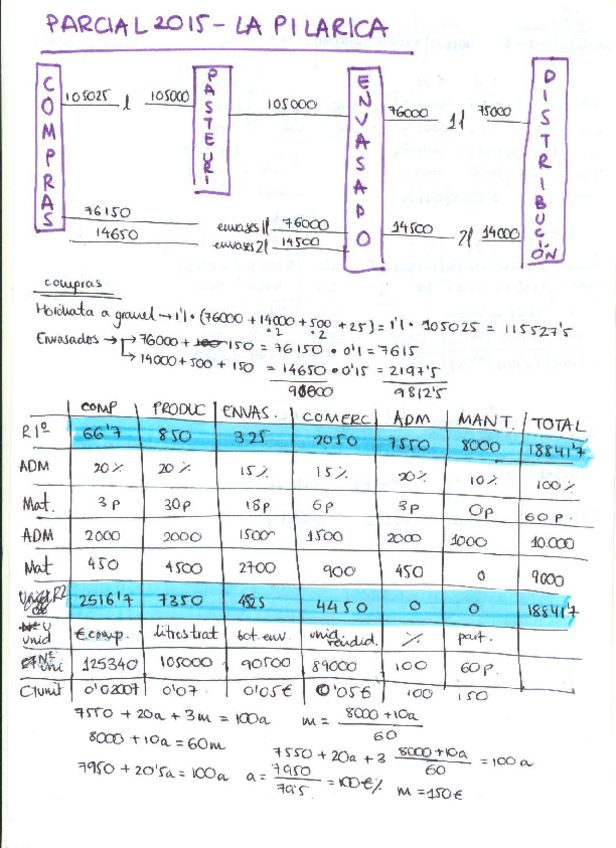 PARCIAL 2015 - LA PILARICA
COMPRAS
PASTEURI
ENVASADO
DISTRIBUCIÓN
105025 l 105000
105000
76000 1l 75000
76150
14650
envases 1l 76000
envases 2l 14500
14500 2l 14000
compras
Horchata a granel → 1'1 · (76000 + 14000 + 500 + 25) = 1'1 · 105025 = 115527'5
·2 ·2
Envasados → → 76000 + 150 = 76150 · 0'1 = 7615
→ 14000 + 500 + 150 = 14650 · 0'15 = 2197'5
9812'5
COMP PRODUC ENVAS. COMERC ADM MANT. TOTAL
R1º 66'7 850 325 2050 7550 8000 18841'7
ADM 20% 20% 15% 15% 20% 10% 100%
Mat. 3p 30p 18p 6p 3p 0p 60p.
ADM 2000 2000 1500 1500 2000 1000 10.000
Mat 450 4500 2700 900 450 0 9000
R2 2516'7 7350 4525 4450 0 0 18841'7
unid €comp. litros trat bot. env. unid. vendid. % part.
Nº uni 125340 105000 90500 89000 100 60p.
CTunit 0'02007 0'07 0'05€ 0'05€ 100 150
7550 + 20a + 3m = 100a m = 8000 + 10a / 60
8000 + 10a = 60m 7550 + 20a + 3 8000 + 10a / 60 = 100a
7950 + 20'5a = 100a a = 7950 / 79'5 = 100€/% m = 150€